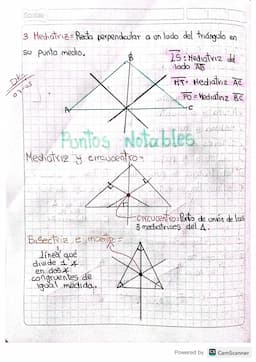 3 Mediatriz = Recta perpendicular a un lado del triángulo en
su punto medio.
B
LS: Mediatriz del
lado AB
MT= Mediatriz AC
PO= Mediatriz BC
A
C
Puntos Notables
Mediatriz y circuncentro =
CIRCUNCENTRO: Pnto de unión de las
3 mediatrices del Δ.
Bisectriz e
línea que
divide 1 ∡
en dos ∡
congruentes de
igual medida.
Powered by CS CamScanner